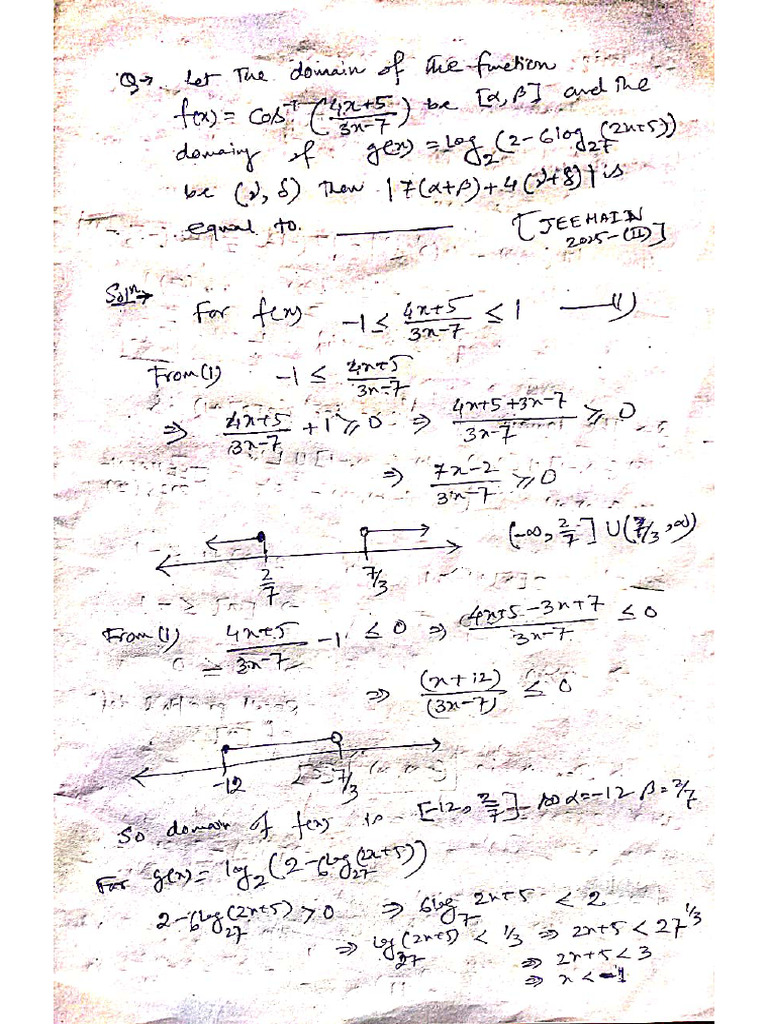 Q→ Let The domain of the function
f(x) = cos⁻¹ (4x+5 / 3x-7) be [α, β] and the
domain of g(x) = log₂ (2-6log₂₇(2x+5))
be (γ, δ) Then |7(α+β)+4(γ+δ)| is
equal to. ______ [JEE MAIN
2025-(II)]
Solⁿ→
For f(x) -1 ≤ 4x+5 / 3x-7 ≤ 1 —(1)
From (1) -1 ≤ 4x+5 / 3x-7
⇒ 4x+5 / 3x-7 + 1 ≥ 0 ⇒ 4x+5+3x-7 / 3x-7 ≥ 0
⇒ 7x-2 / 3x-7 ≥ 0
(-∞, 2/7] ∪ (7/3, ∞)
2/7 7/3
From (1) 4x+5 / 3x-7 - 1 ≤ 0 ⇒ 4x+5-3x+7 / 3x-7 ≤ 0
⇒ (x+12) / (3x-7) ≤ 0
-12 7/3
So domain of f(x) is [-12, 2/7] so α=-12 β=2/7
For g(x) = log₂ (2-6log₂₇(2x+5))
2-6log₂₇(2x+5) > 0 ⇒ 6log₇ 2x+5 < 2
⇒ log₂₇(2x+5) < 1/3 ⇒ 2x+5 < 27^1/3
⇒ 2x+5 < 3
⇒ x < -1